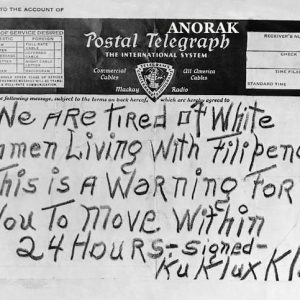 TO THE ACCOUNT OF
ANORAK
OF SERVICE DESIRED
Postal Telegraph
THE INTERNATIONAL SYSTEM
Commercial Cables
All America Cables
Mackay Radio
RECEIVER'S
CHECK
TIME FILED
STANDARD TIME
following message, subject to the terms on back hereof, which are hereby agreed to
We ARe tired of White
men Living With filipen
This is A WARNing FoR
You To Move Within
24 HOURS - signed -
Ku Klux Kl